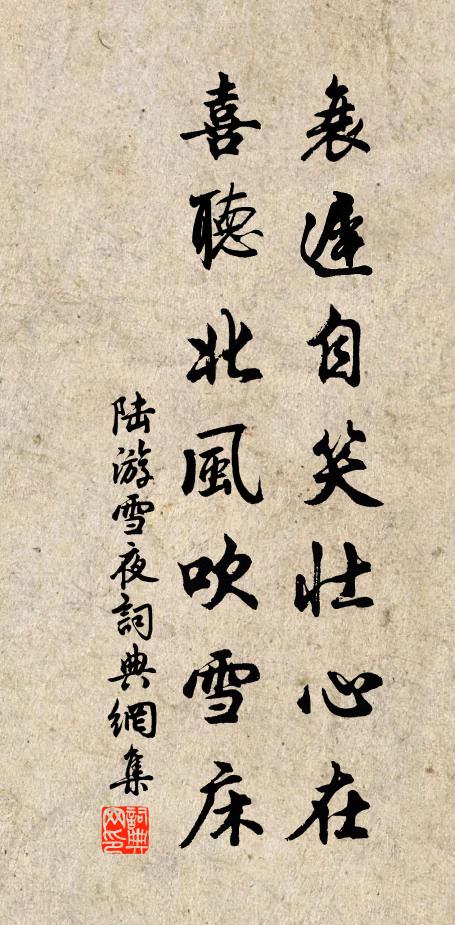 衰遲自笑壯心在
喜聽北風吹雪床
陸游雪夜詞典網集
詞典網印